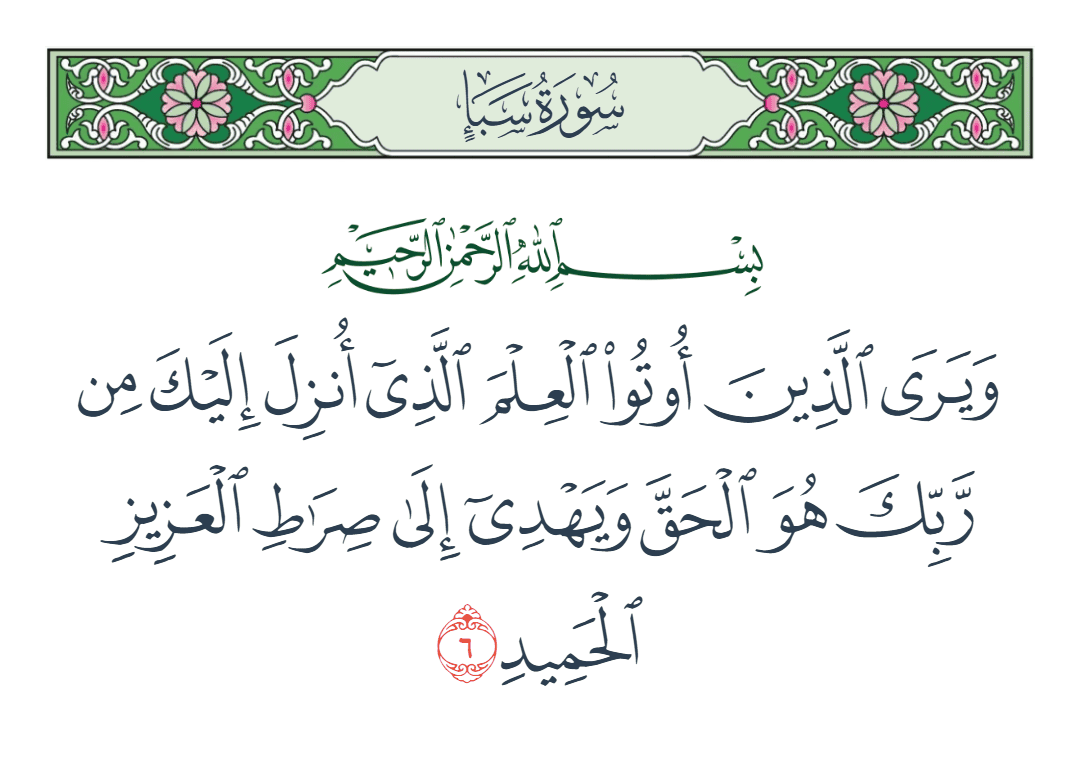 سُورَةُ سَبَإٍ
بِسْمِ ٱللَّهِ ٱلرَّحْمَٰنِ ٱلرَّحِيمِ
وَيَرَى ٱلَّذِينَ أُوتُوا۟ ٱلْعِلْمَ ٱلَّذِىٓ أُنزِلَ إِلَيْكَ مِن
رَّبِّكَ هُوَ ٱلْحَقَّ وَيَهْدِىٓ إِلَىٰ صِرَٰطِ ٱلْعَزِيزِ
ٱلْحَمِيدِ ٦